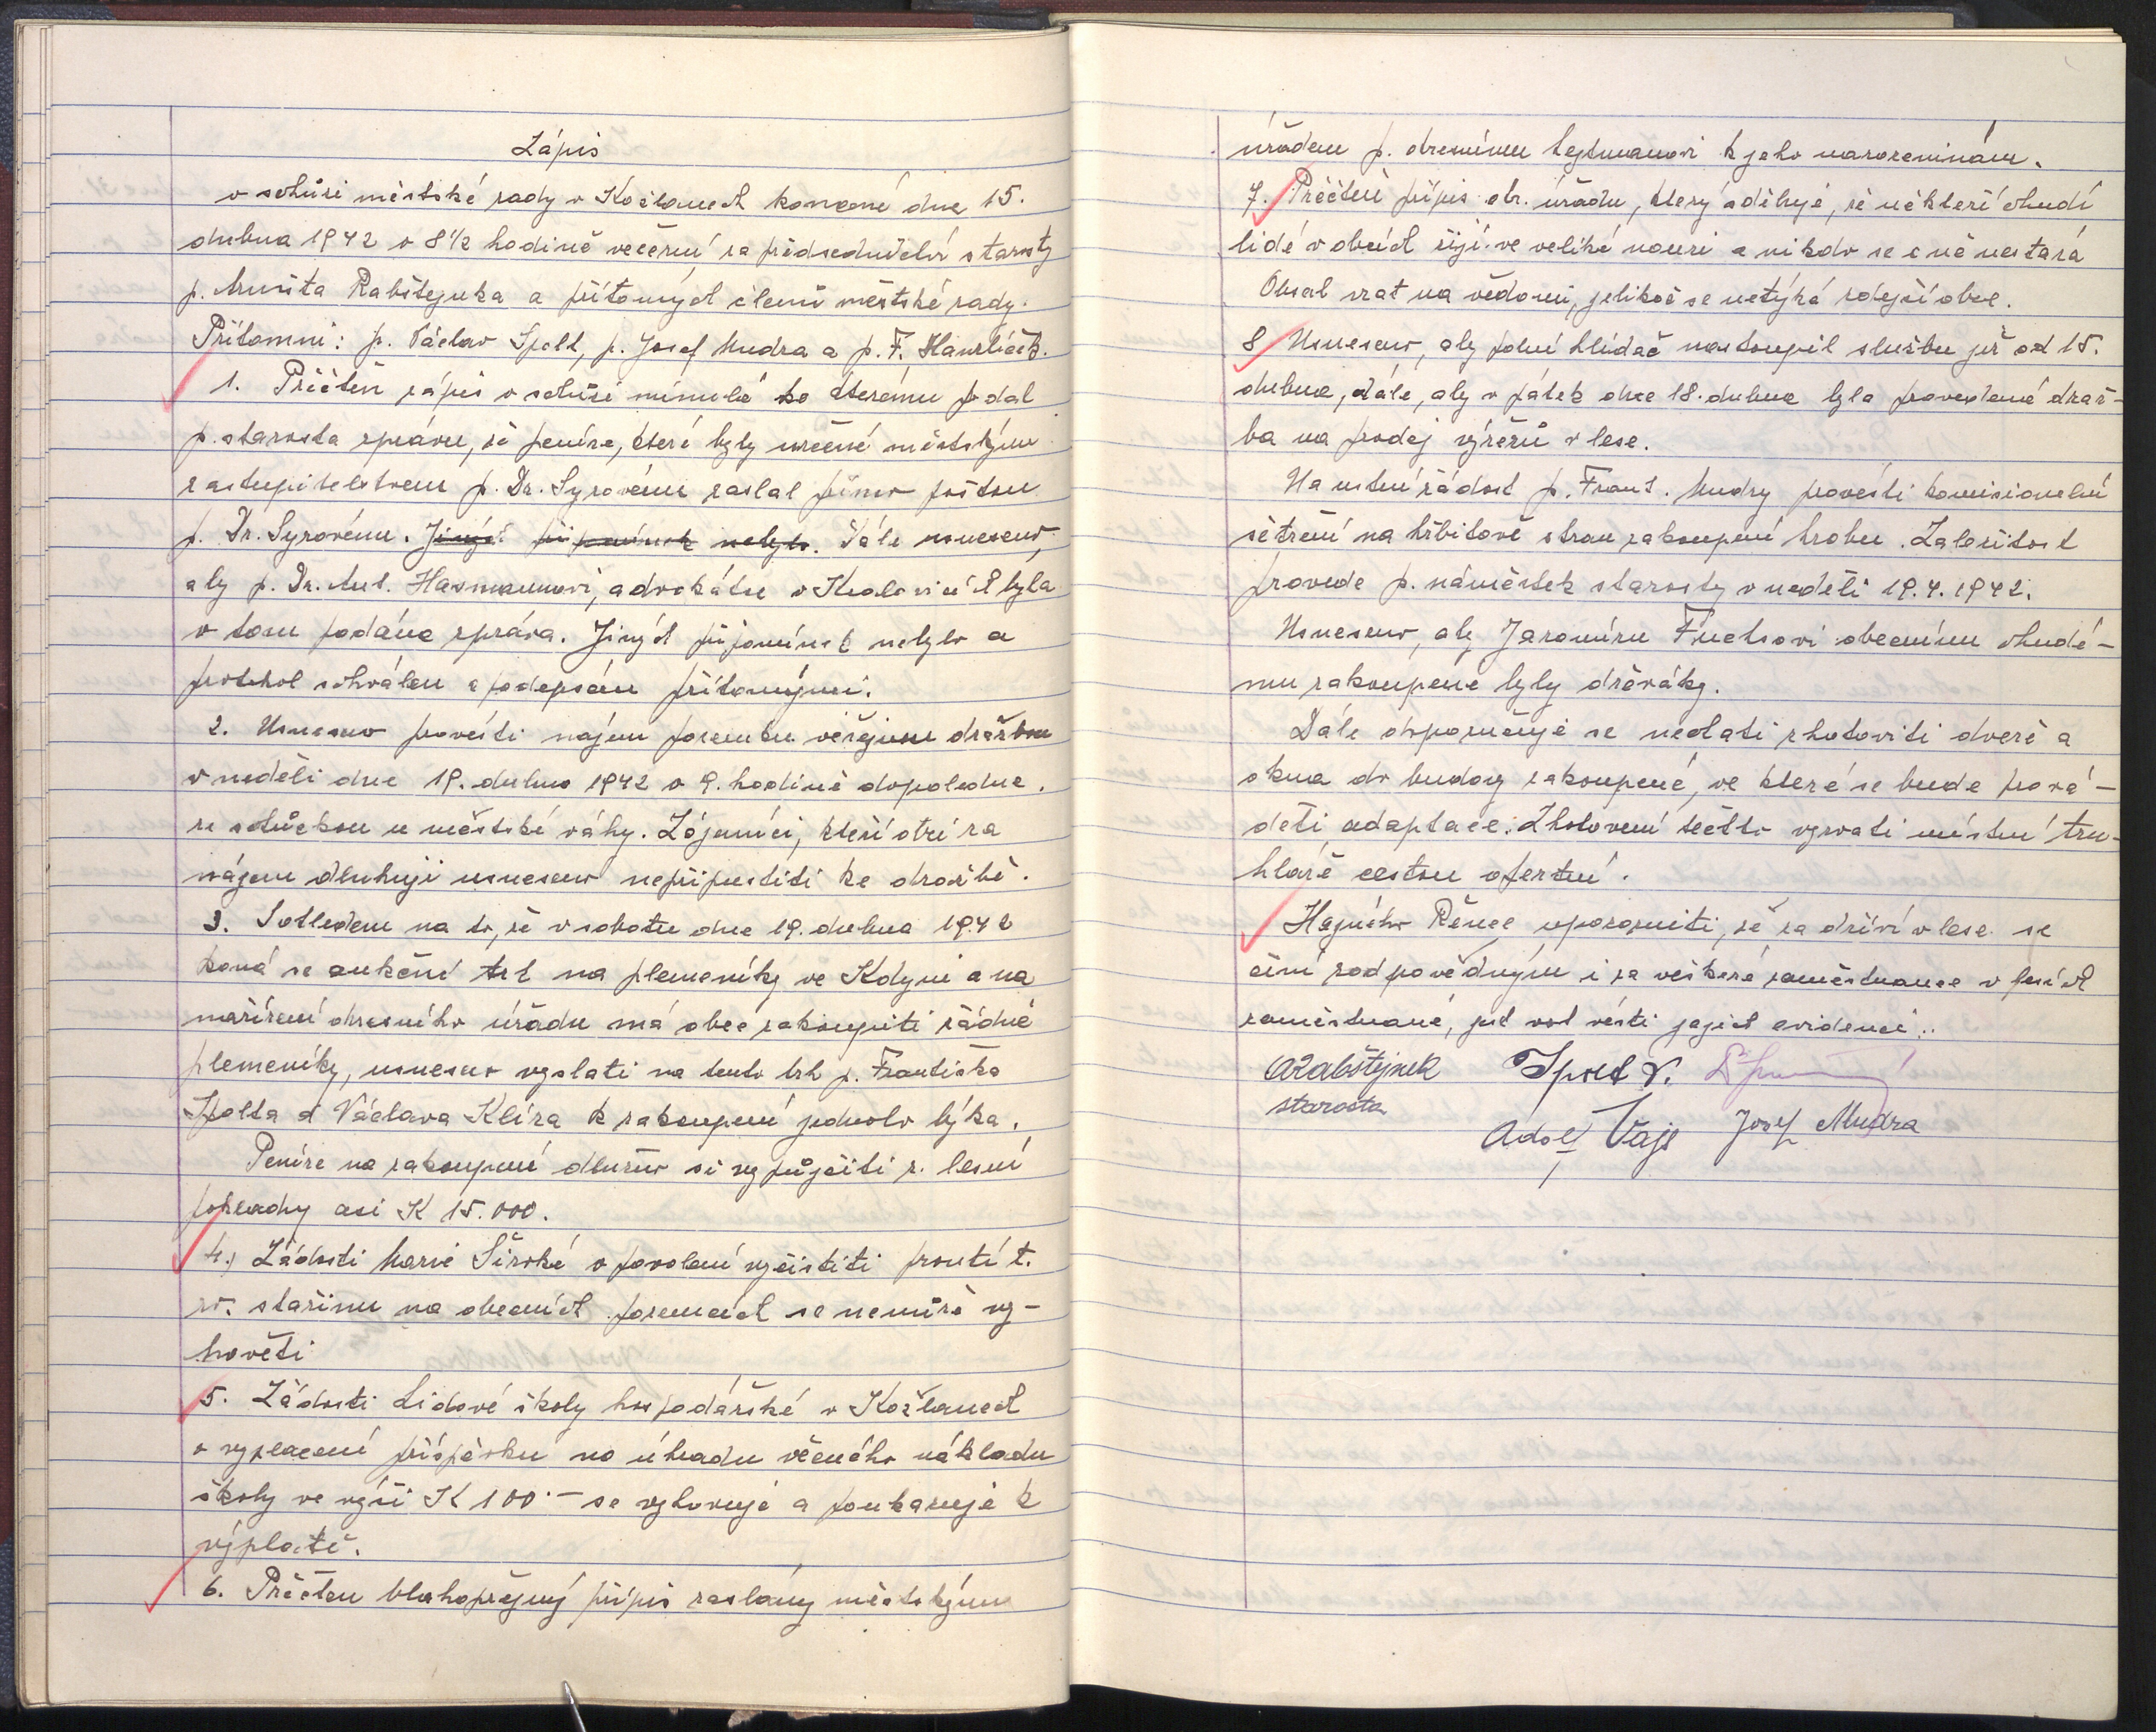 Zápis
o schůzi městské rady v Kožlanech konané dne 15.
dubna 1942 o 8 1/2 hodině večerní za předsednictví starosty
p. Rabštejnka a přítomných členů městské rady.
Přítomni: p. Václav Špelt, p. Josef Mudra a p. F. Hanzlíček.
1. Přečten zápis o schůzi minulé ke kterému podal
p. starosta zprávu, že peníze, které byly určené městským
zastupitelstvem p. Dr. Syrovému zaslal přímo poštou
p. Dr. Syrovému. Jiných připomínek nebylo. Dále usneseno,
aby p. Dr. Ant. Hasmannovi, advokátu v Kralovicích byla
o tom podána zpráva. Jiných připomínek nebylo a
protokol schválen a podepsán přítomnými.
2. Usneseno provésti nájem pozemku veřejnou dražbou
v neděli dne 19. dubna 1942 o 9. hodině dopoledne.
se schůzkou u městské váhy. Zájemníci, kteří otrž za
nájem dluhují usneseno nepřipustiti ke dražbě.
3. S ohledem na to, že v sobotu dne 19. dubna 1942
koná se aukční trh na plemeníky ve Kdyni a na
nařízení okresního úřadu má obec zakoupiti řádné
plemeníky, usneseno vyslati na tento trh p. Františka
Špelta a Václava Klíra k zakoupení jednoho býka.
Peníze na zakoupení dlužno si vypůjčiti z lesní
pokladny asi K 15.000.
4.) Žádosti Marie Široké o povolení vyčistiti proutí t.
zv. stařinu na obecních pozemcích se nemůže vy-
hověti
5. Žádosti Lidové školy hospodářské v Kožlanech
o vyplacení příspěvku na úhradu věcného nákladu
školy ve výši K 100.- se vyhovuje a poukazuje k
výplatě.
6. Přečten blahopřejný přípis zaslaný městským
úřadem p. okresnímu hejtmanovi k jeho narozeninám.
7. Přečtení přípis okr. úřadu, který sděluje, že někteří chudí
lidé v obcích žijí ve veliké nouzi a nikdo se o ně nestará
Obsah vzat na vědomí, jelikož se netýká zdejší obce.
8 Usneseno, aby polní hlídač nastoupil službu již od 15.
dubna, dále, aby v pátek dne 18. dubna byla provedena draž-
ba na prodej výřezů v lese.
Na ústní žádost p. Frant. Mudry provésti komisionelní
šetření na hřbitově stran zakoupení hrobu. Záležitost
provede p. náměstek starosty v neděli 19.4.1942.
Usneseno, aby Jaromíru Fuchsovi obecnímu chudé-
mu zakoupené byly dřeváky.
Dále doporučuje se nechati zhotoviti dveře a
okna do budovy zakoupené, ve které se bude prová-
děti adaptace. Zhotovení těchto vyzvati místní tru-
hláře cestou ofertní.
Hajného Řence upozorniti, že za dříví v lese se
činí zodpovědným i za veškeré zaměstnance v lesích
zaměstnané, jest vest vésti jejich evidenci.
ARabštejnek Špelt V.
starosta
Adolf Vajs Josef Mudra